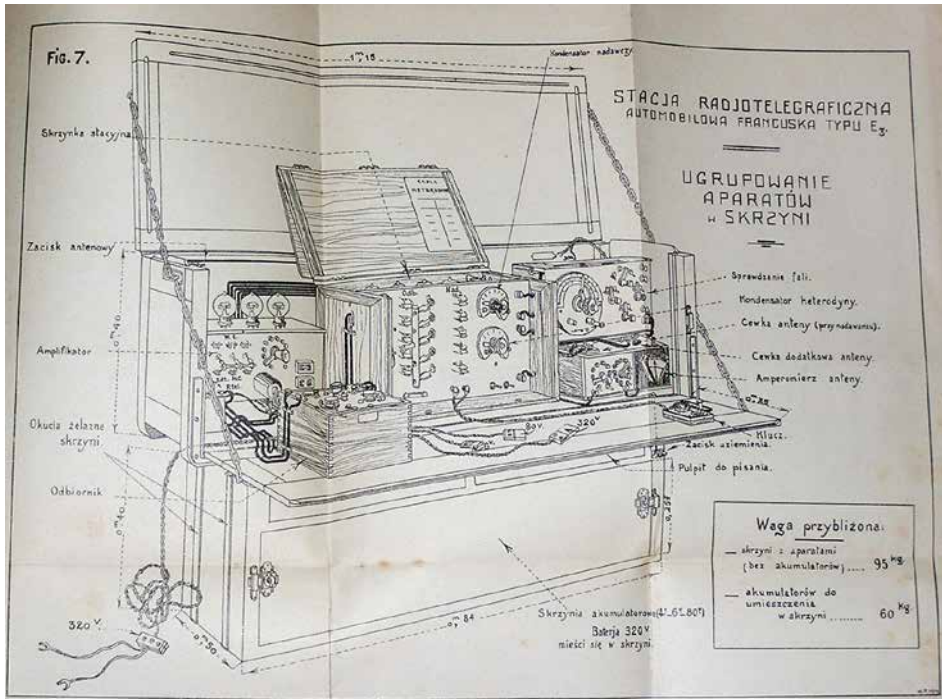 Fig. 7.
1,ᵐ15
Kondensator nadawczy.
STACJA RADJOTELEGRAFICZNA
AUTOMOBILOWA FRANCUSKA TYPU E3.
UGRUPOWANIE
APARATÓW
w SKRZYNI
Skrzynka stacyjna
Zacisk antenowy
0,ᵐ40
Amplifikator
Okucia żelazne
skrzyni.
Odbiornik
0,ᵐ40
320 V.
0,ᵐ50
0,ᵐ84
Sprawdzanie fali.
Kondensator heterodyny.
Cewka anteny (przy nadawaniu).
Cewka dodatkowa anteny.
Amperomierz anteny.
Klucz.
Zacisk uziemienia.
Pulpit do pisania.
80V.
320V
Skrzynia akumulatorowa
Baterja 320V
mieści się w skrzyni.
Waga przybliżona:
— skrzyni z aparatami
(bez akumulatorów)..... 95 Kg.
— akumulatorów do
umieszczenia
w skrzyni ......... 60 Kg.